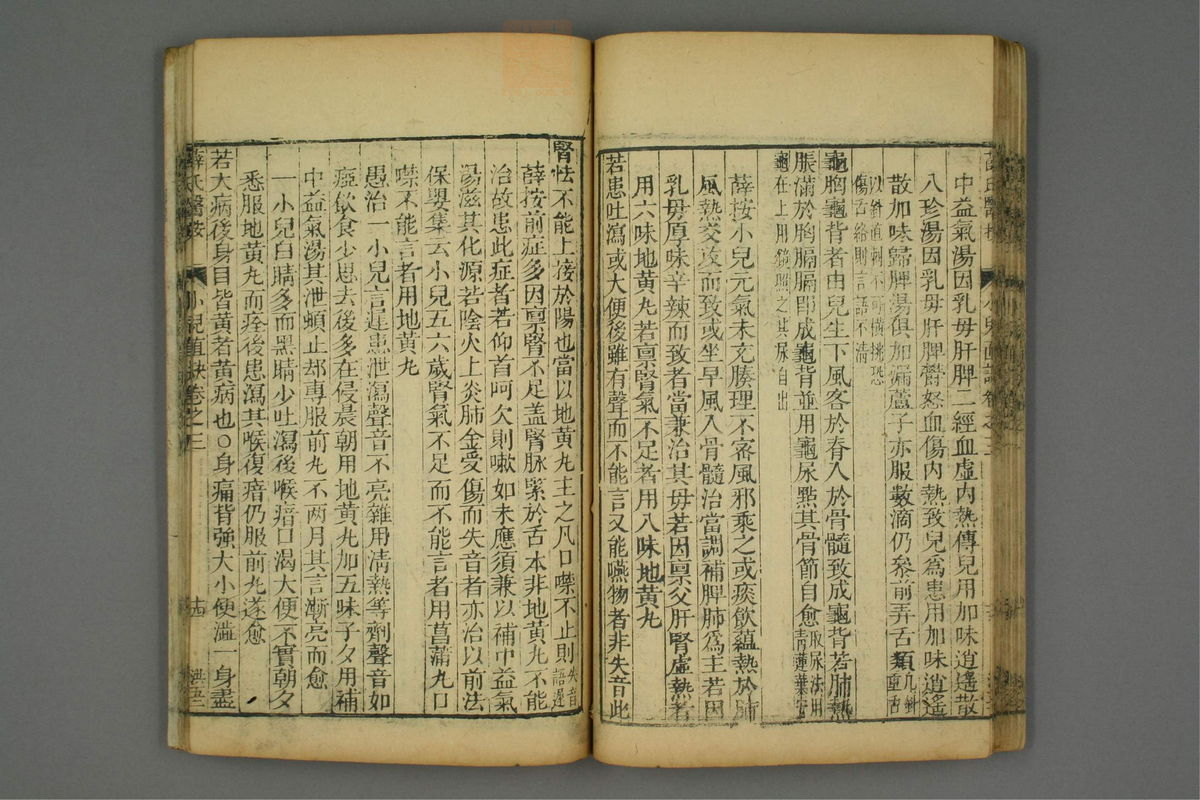 中益氣湯因乳母肝脾二經血虛內熱傳兒用加味逍遙散
八珍湯因乳母肝脾鬱怒血傷內熱致兒爲患用加味逍遙
散加味歸脾湯俱加漏蘆子亦服數滴仍叅前弄舌類凡鍼重舌
以針直刺不可橫挑恐傷舌絡則言語不清
龜胸龜背者由兒生下風客於脊入於骨髓致成龜背若肺熱
脹滿於胸膈膈即成龜背並用龜尿點其骨節自愈取尿法用青蓮葉安
龜在上用鏡照之其尿自出
薛按小兒元氣未充腠理不密風邪乘之或痰飲蘊熱於肺
風熱交攻而致或坐早風入骨髓治當調補脾肺爲主若因
乳母厚味辛辣而致者當兼治其母若因稟父肝腎虛熱者
用六味地黄丸若稟腎氣不足者用八味地黄丸
若患吐瀉或大便後雖有聲而不能言又能嚥物者非失音此
腎怯不能上接於陽也當以地黄丸主之凡口噤不止則失音語遲
薛按前症多因稟腎不足盖腎脉緊於舌本非地黄丸不能
治故患此症者若仰首呵欠則嗽如未應須兼以補中益氣
湯滋其化源若陰火上炎肺金受傷而失音者亦治以前法
保嬰集云小兒五六歲腎氣不足而不能言者用菖蒲丸口
噤不能言者用地黄丸
愚治一小兒言遲患泄瀉聲音不亮雜用清熱等劑聲音如
瘂飲食少思去後多在侵晨朝用地黄丸加五味子夕用補
中益氣湯其泄頓止却專服前丸不两月其言漸亮而愈
一小兒白睛多而黑睛少吐瀉後喉瘖口渴大便不實朝夕
悉服地黄丸而痊後患瀉其喉復瘖仍服前丸遂愈
若大病後身目皆黄者黄病也○身痛背強大小便澁一身盡
薛氏醫按 小兒直訣卷之三 十四 洪五三